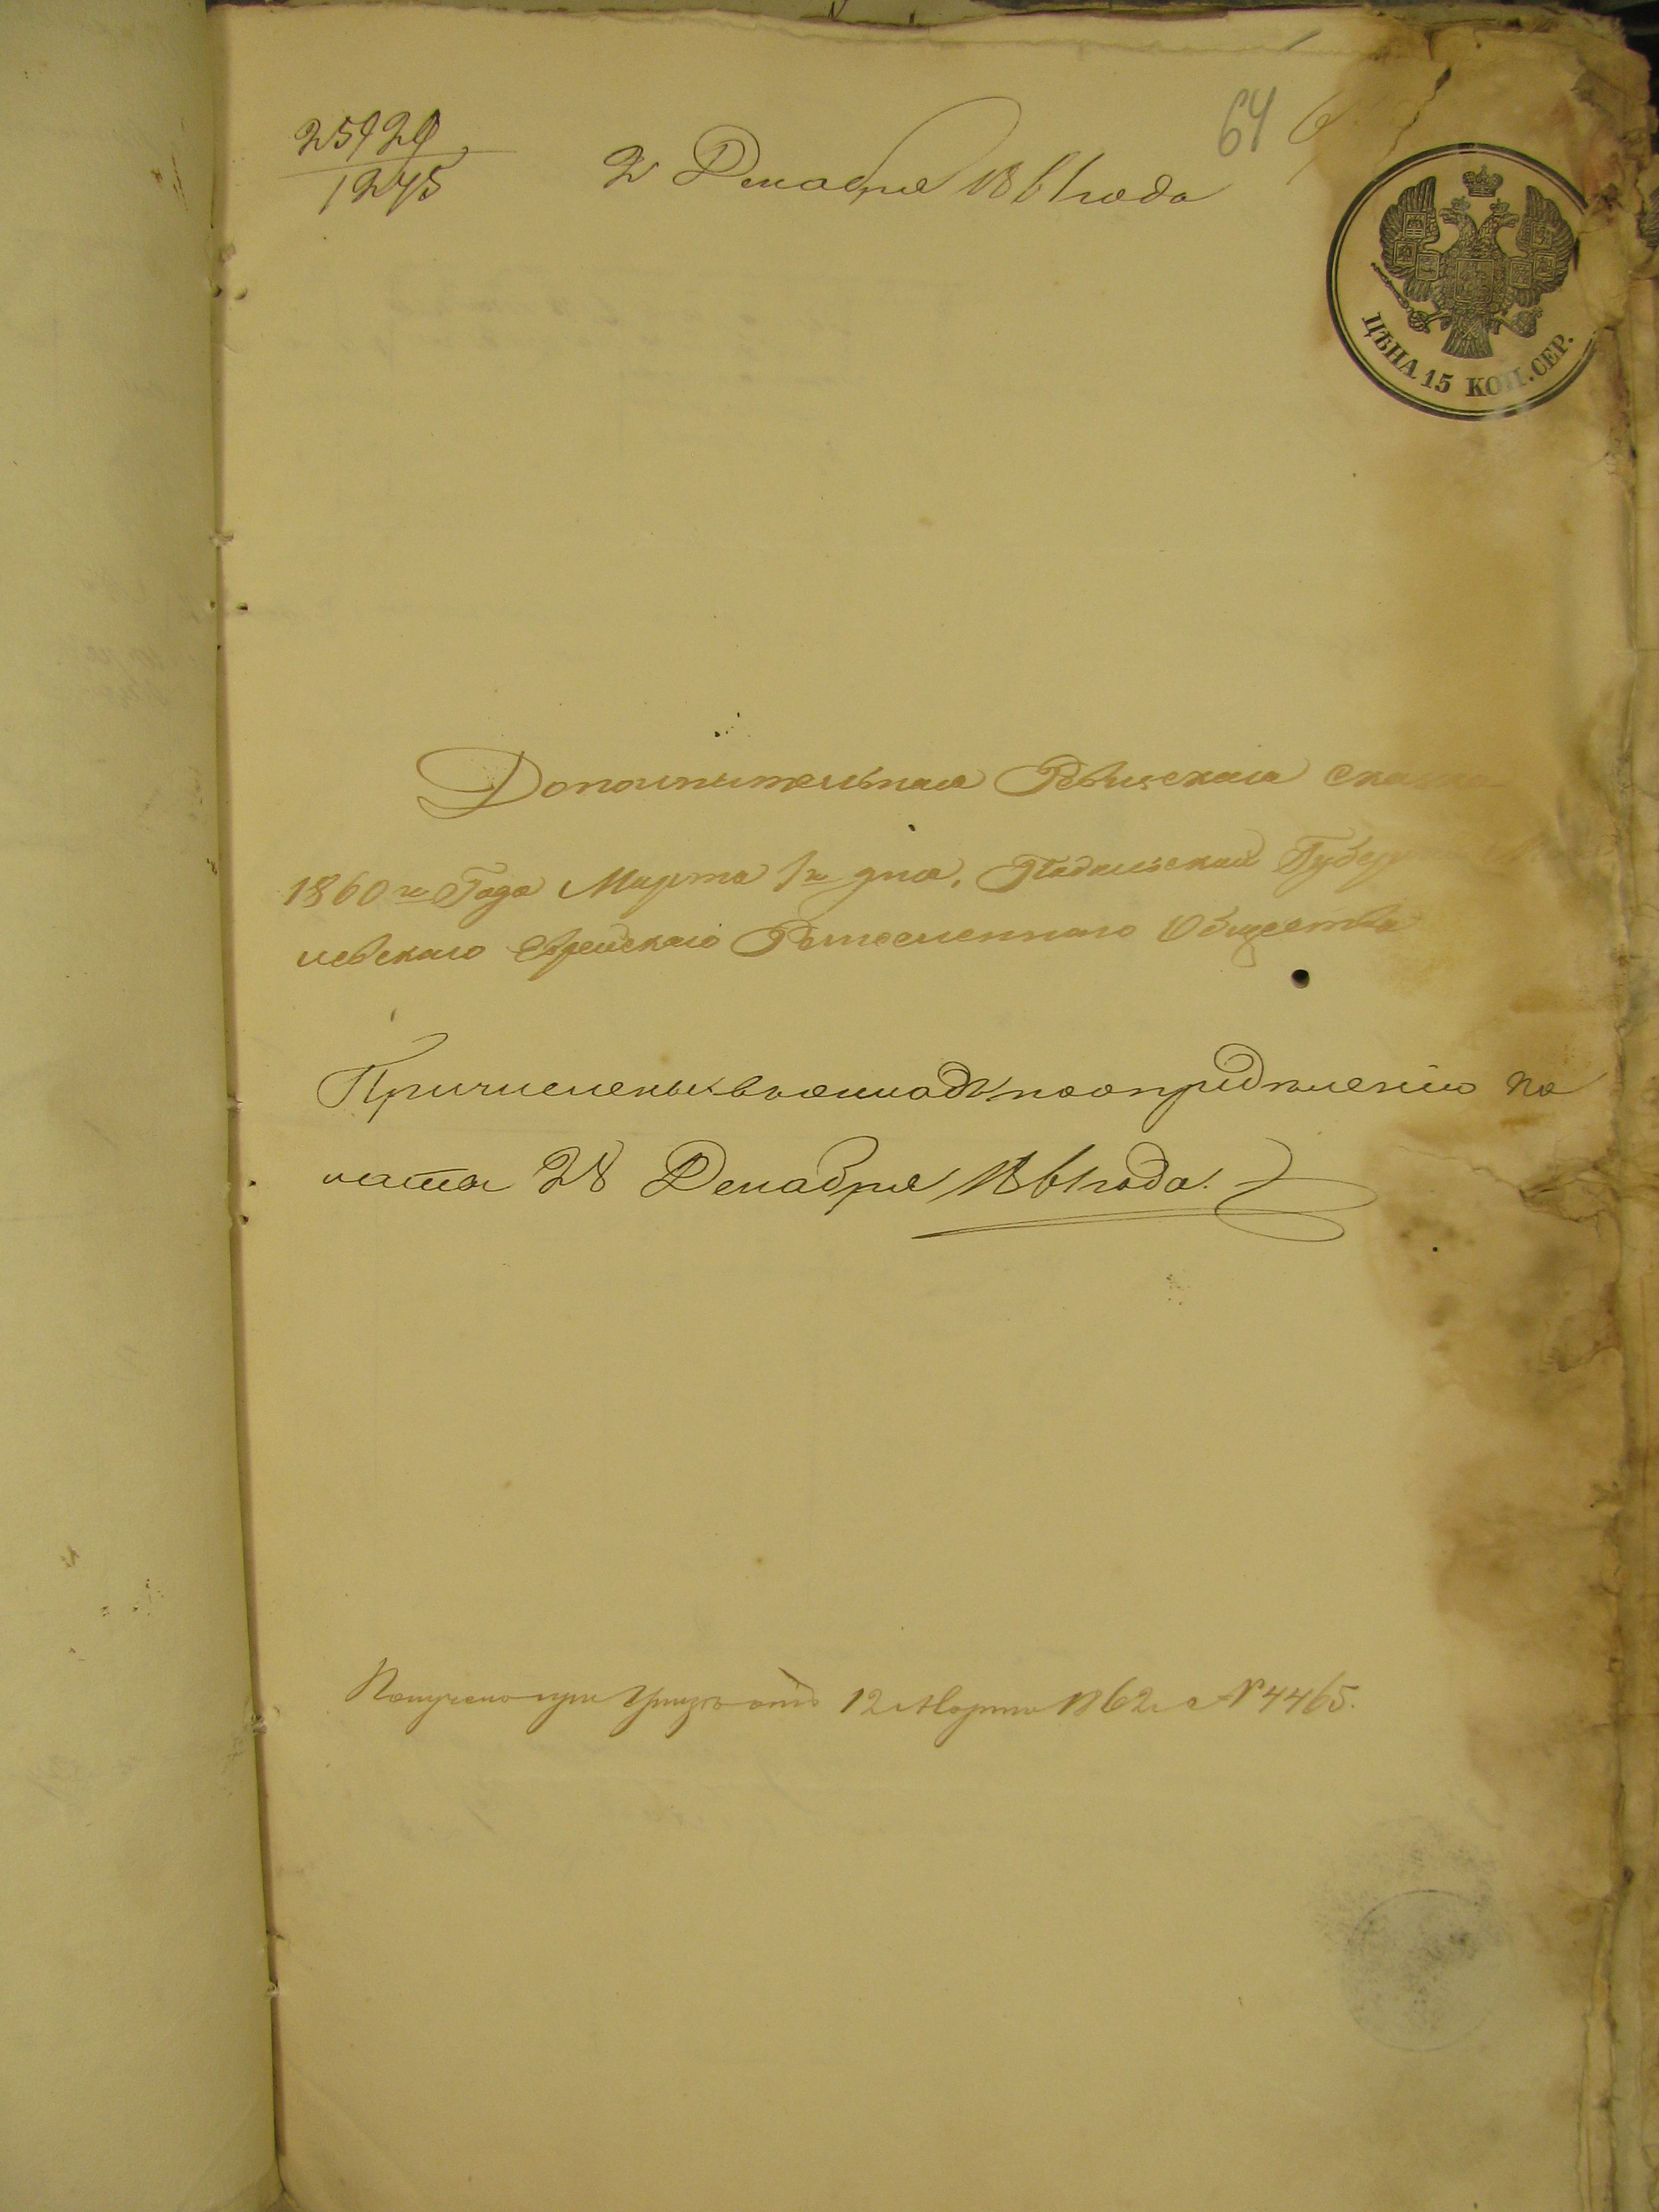 25929
1245
2 Декабря 1861 года
64
ЦѢНА 15 КОП. СЕР.
Дополнительная Ревизская сказка
1860го Года Марта 1го дня, Подольской Губер
левскаго Еврейскаго Общества
Причислены въ окладъ по опредѣленію Па
латы 28 Декабря 1861 года.
Получено при Указѣ отъ 12 Марта 1862 г № 4465.